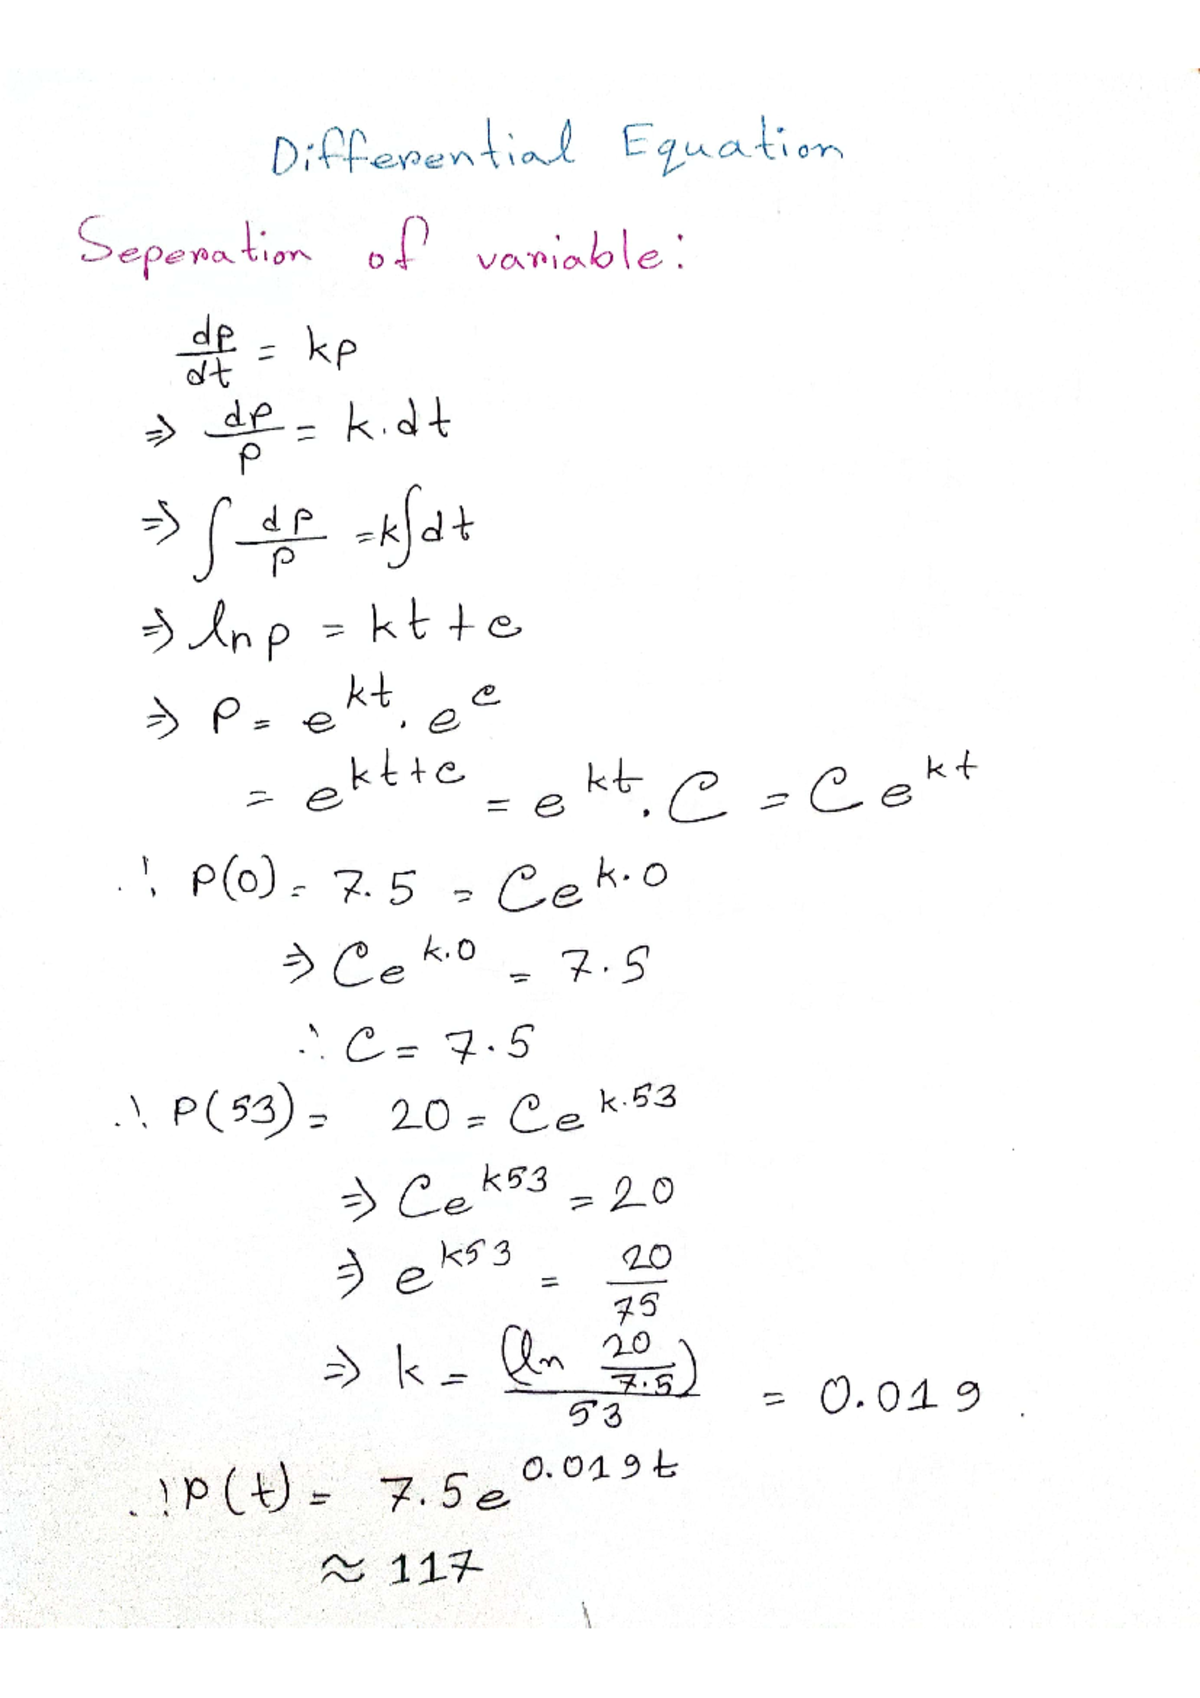 Differential Equation
Seperation of variable:
dp/dt = kp
⇒ dp/p = k.dt
⇒ ∫ dp/p = k∫dt
⇒ ln p = kt + c
⇒ P = e^kt . e^c
= e^kt+c = e^kt . C = C e^kt
∴ P(0) = 7.5 = Ce^k.0
⇒ Ce^k.0 = 7.5
∴ C = 7.5
∴ P(53) = 20 = Ce^k.53
⇒ Ce^k53 = 20
⇒ e^k53 = 20/75
⇒ k = (ln 20/7.5)/53 = 0.019.
∴ P(t) = 7.5e^0.019t
≈ 117